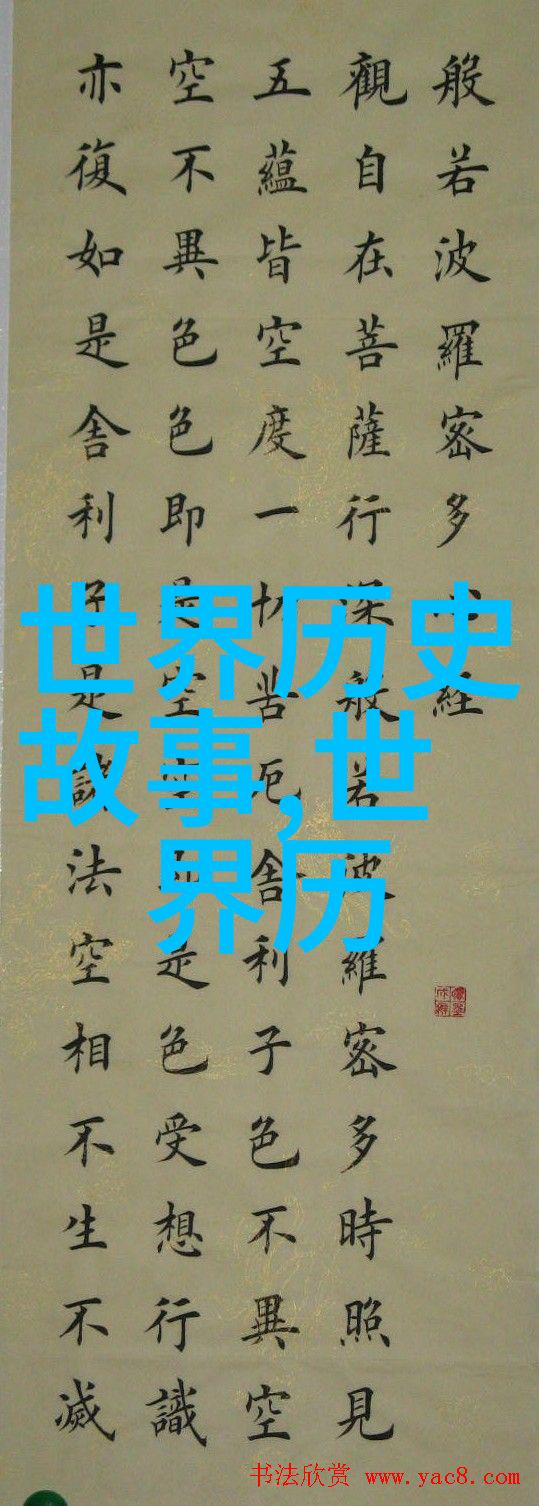 般若波羅密多心經
觀自在菩薩行深般若波羅密多時照見
五蘊皆空度一切苦厄舍利子色不異空
空不異色色即是空空即是色受想行識
亦復如是舍利子是諸法空相不生不滅
世界历史
故事,世
界历
书法欣赏 www.yac8.com